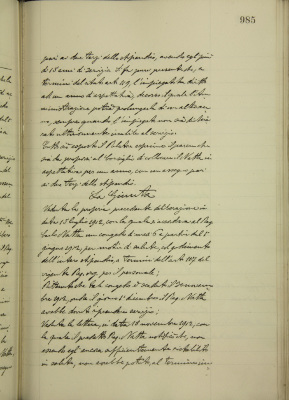 985
pari a due terzi dello stipendio, avendo egli più
di 15 anni di servizio. Si fa pure presente che, a
termini del citato art. 109, l'impiegato ha diritto
ad un anno di aspettativa, decorso il quale l'Am-
ministrazione potrà prolungarla di un altro an-
no, sempre quando l'impiegato non sia
di servizio.
sia da proporsi al Consiglio di collocare il Natta in
aspettativa per un anno, con un assegno pari
ai due terzi dello stipendio.
La Giunta
Veduta la propria precedente deliberazione in
data 15 luglio 1912, con la quale si accordava al Rag.
Natta un congedo di mesi 6 a partire dal 1°
giugno 1912, per motivi di salute, col godimento
dell'intero stipendio a termini dell'art. 107 del
vigente Reg. org. per il personale;
Ritenuto che tale congedo è scaduto il 30 novem-
bre 1912, e che il giorno 1° dicembre il Rag. Natta
avrebbe dovuto riprendere servizio;
Veduta la lettera, in data 18 novembre 1912, con
la quale il predetto Rag. Natta notifica che, non
essendo egli ancora sufficientemente ristabilito
in salute, non avrebbe potuto, al terminare